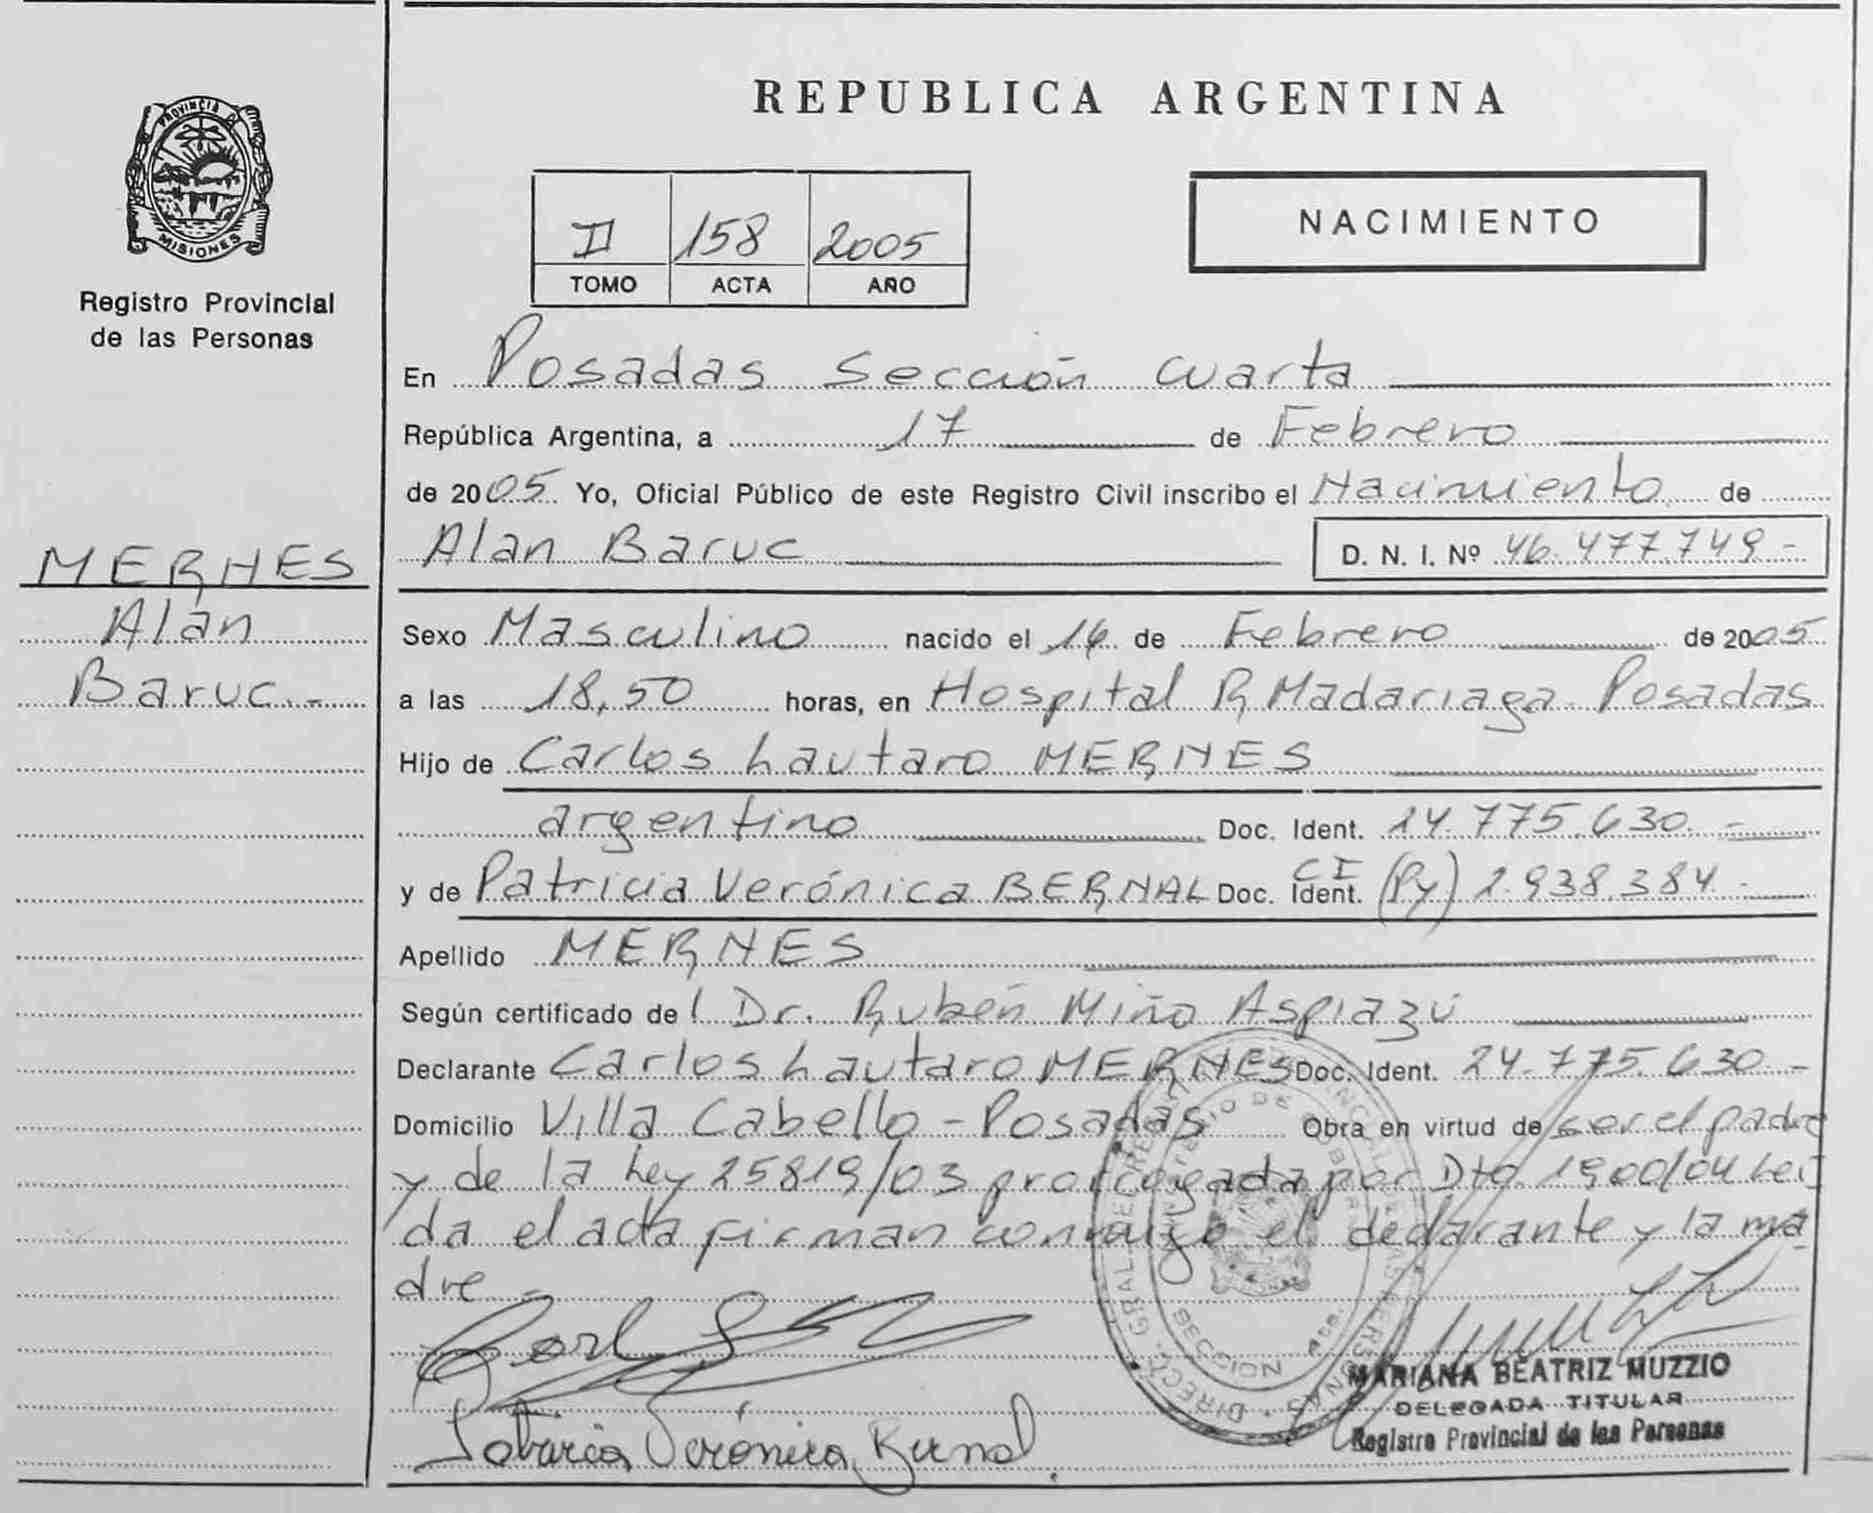 PROVINCIA DE
MISIONES
Registro Provincial
de las Personas
MERNES
Alan
Baruc.-
REPUBLICA ARGENTINA
II 158 2005
TOMO ACTA AÑO
NACIMIENTO
En Posadas Sección Cuarta
República Argentina, a 17 de Febrero
de 2005 Yo, Oficial Público de este Registro Civil inscribo el Nacimiento de
Alan Baruc D. N. I. Nº 46.477.749-
Sexo Masculino nacido el 14 de Febrero de 2005
a las 18,50 horas, en Hospital R. Madariaga. Posadas
Hijo de Carlos Lautaro MERNES
argentino Doc. Ident. 24.775.630.-
y de Patricia Verónica BERNAL Doc. Ident. CI (Py) 2.938.384.-
Apellido MERNES
Según certificado del Dr. Rubén Miño Aspiazú
Declarante Carlos Lautaro MERNES Doc. Ident. 24.775.630.-
Domicilio Villa Cabello - Posadas Obra en virtud de ser el padre
y de la Ley 25819/03 prorrogada por Dto. 1900/04 Leí
da el acta firman conmigo el declarante y la ma
dre.-
Patricia Verónica Bernal
MARIANA BEATRIZ MUZZIO
DELEGADA TITULAR
Registro Provincial de las Personas